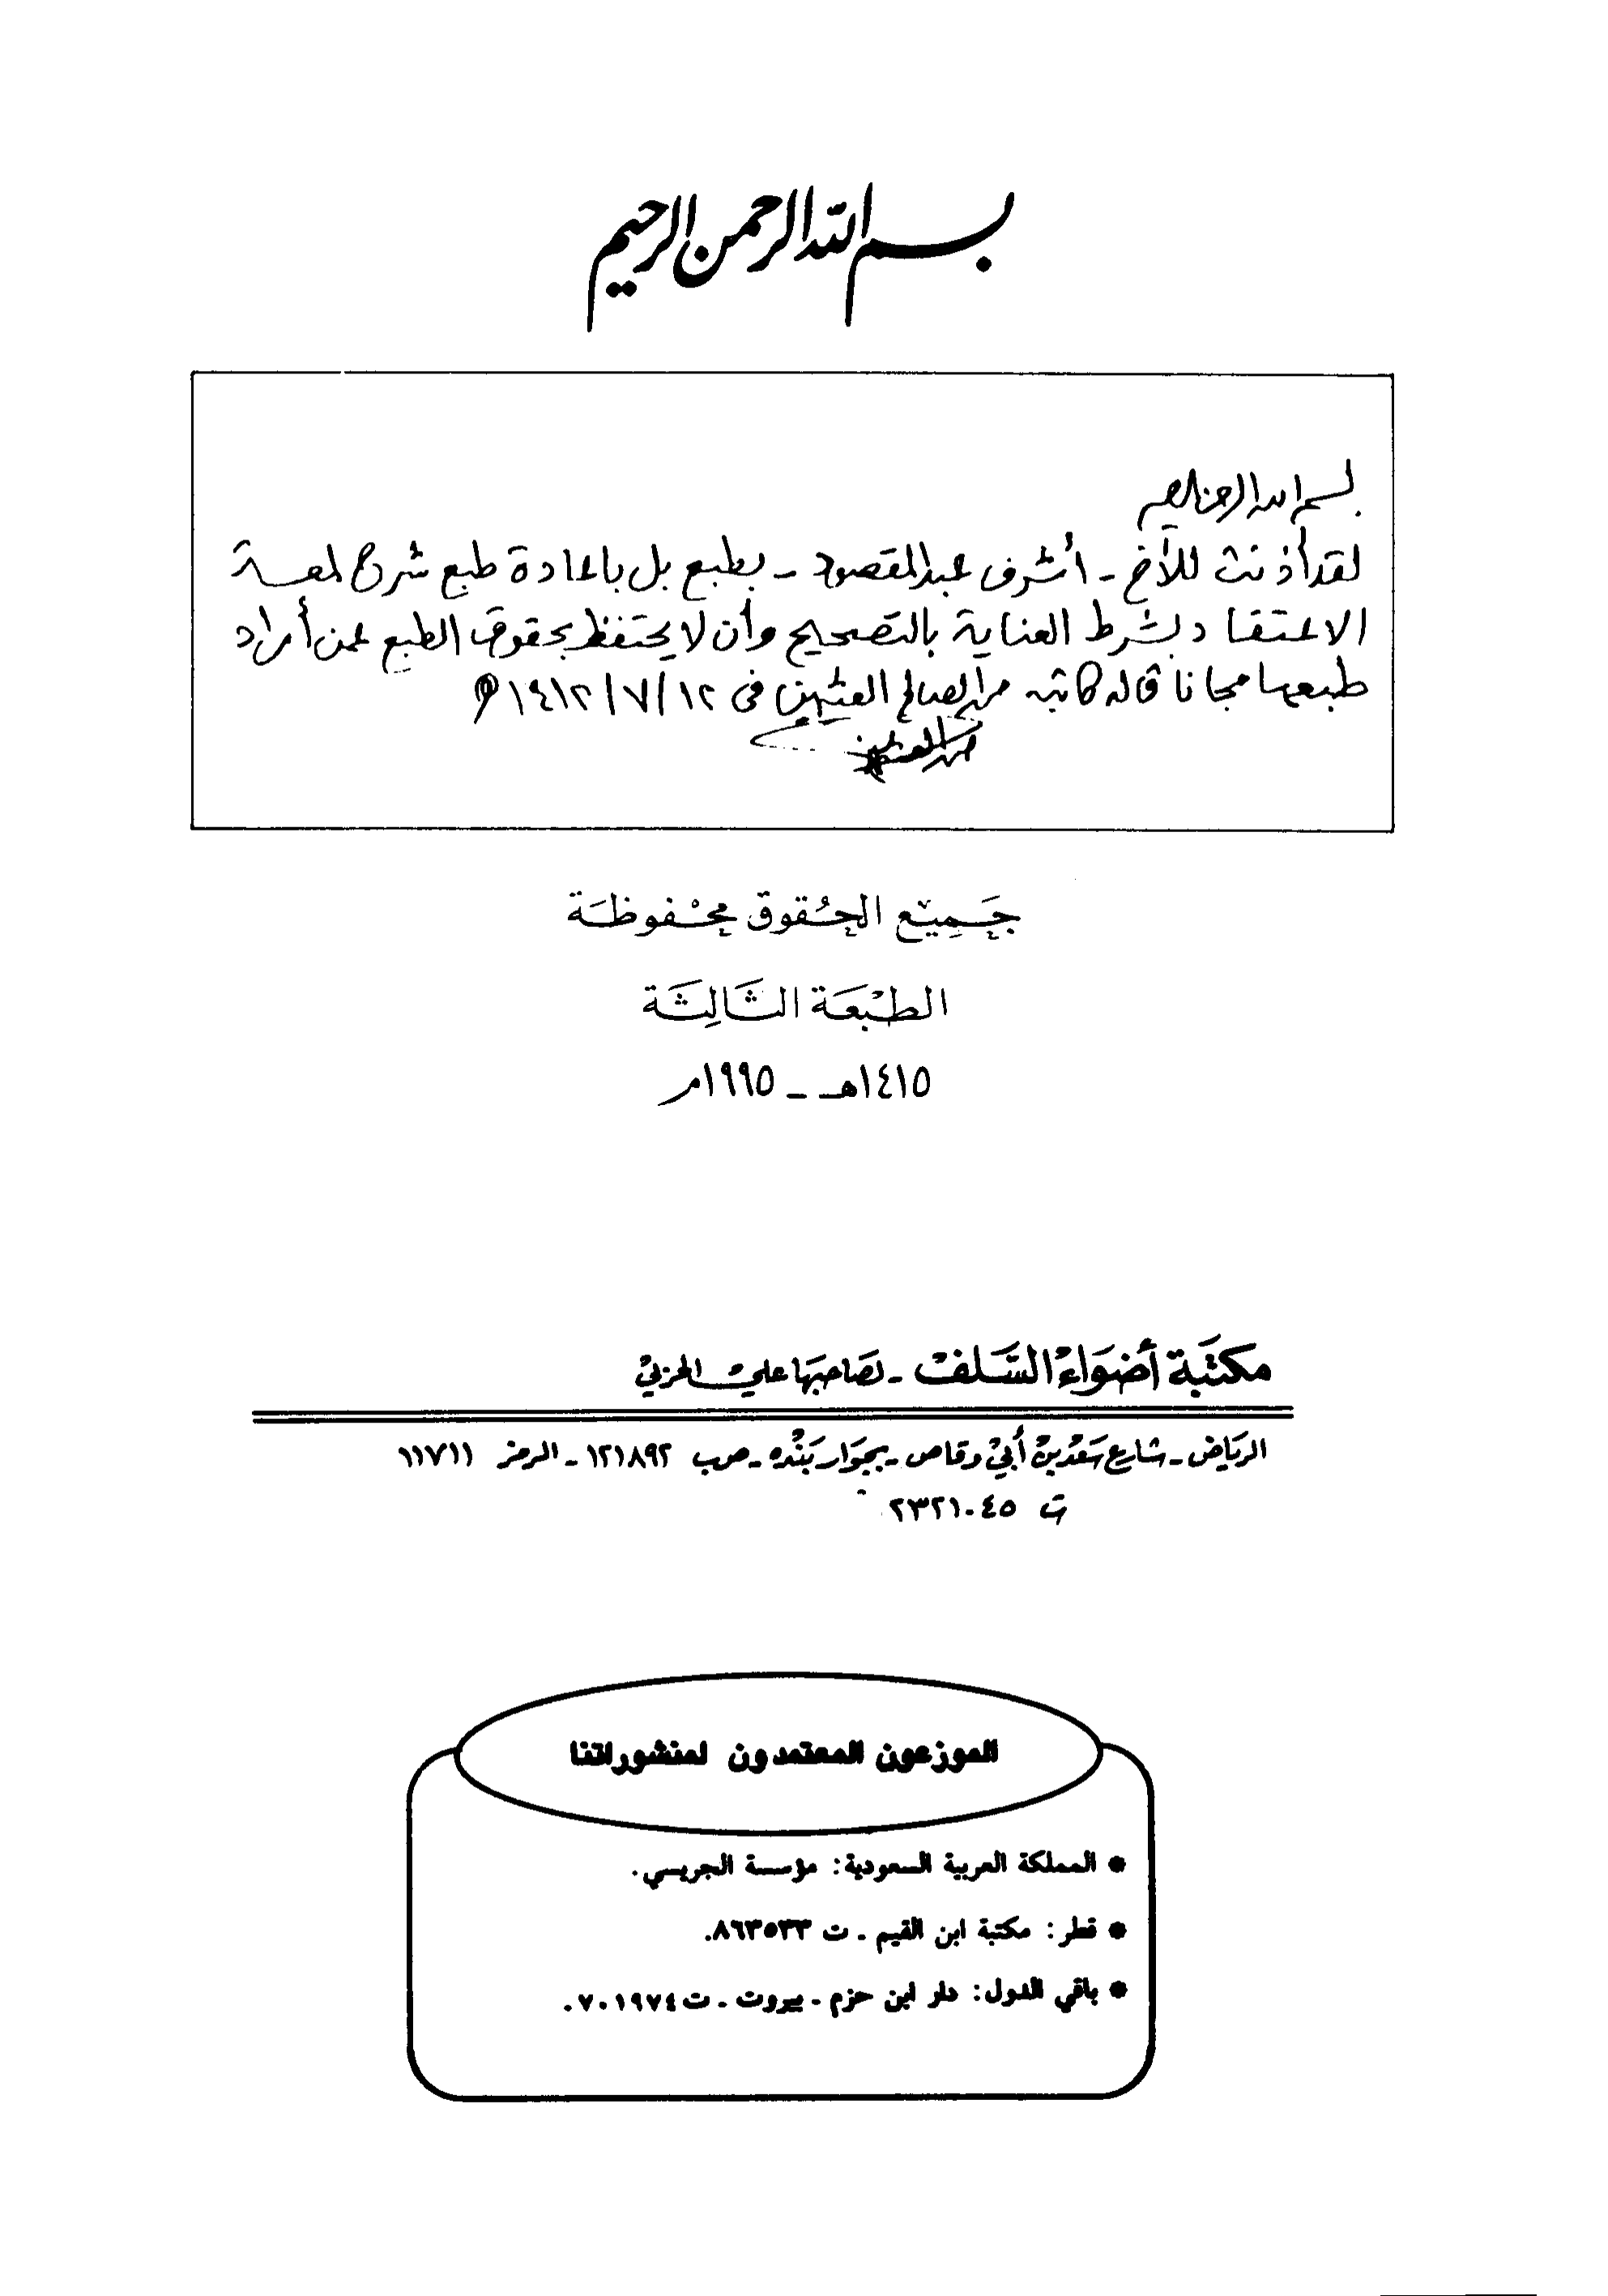 بسم الله الرحمن الرحيم
بسم الله الرحمن الرحيم
لقد أذنت للأخ - أشرف عبد المقصود - بطبع بل بإعادة طبع شرح لمعة
الاعتقاد بشرط العناية بالتصحيح وأن لا يحتفظ بحقوق الطبع عمن أراد
طبعها مجانا قاله كاتبه محمد الصالح العثيمين في ١٢/٧/١٤١٢هـ
محمد العثيمين
جَمِيع الحُقوق مَحْفوظَة
الطبْعَة الثَالِثَة
١٤١٥هـ - ١٩٩٥م
مكتَبَة أضوَاء السَّلف - لصَاحبهَا علي الحربي
الريَاض - شارع سَعْد بنْ أبي وقاص - بجوَار بَنْده - ص ب ١٢١٨٩٢ - الرمز ١١٧١١
ت ٢٣٢١٠٤٥
الموزعون المعتمدون لمنشوراتنا
* المملكة العربية السعودية: مؤسسة الجريسي.
* قطر: مكتبة ابن القيم - ت ٨٦٣٥٣٣.
* باقي الدول: دار ابن حزم - بيروت - ت ٧٠١٩٧٤.